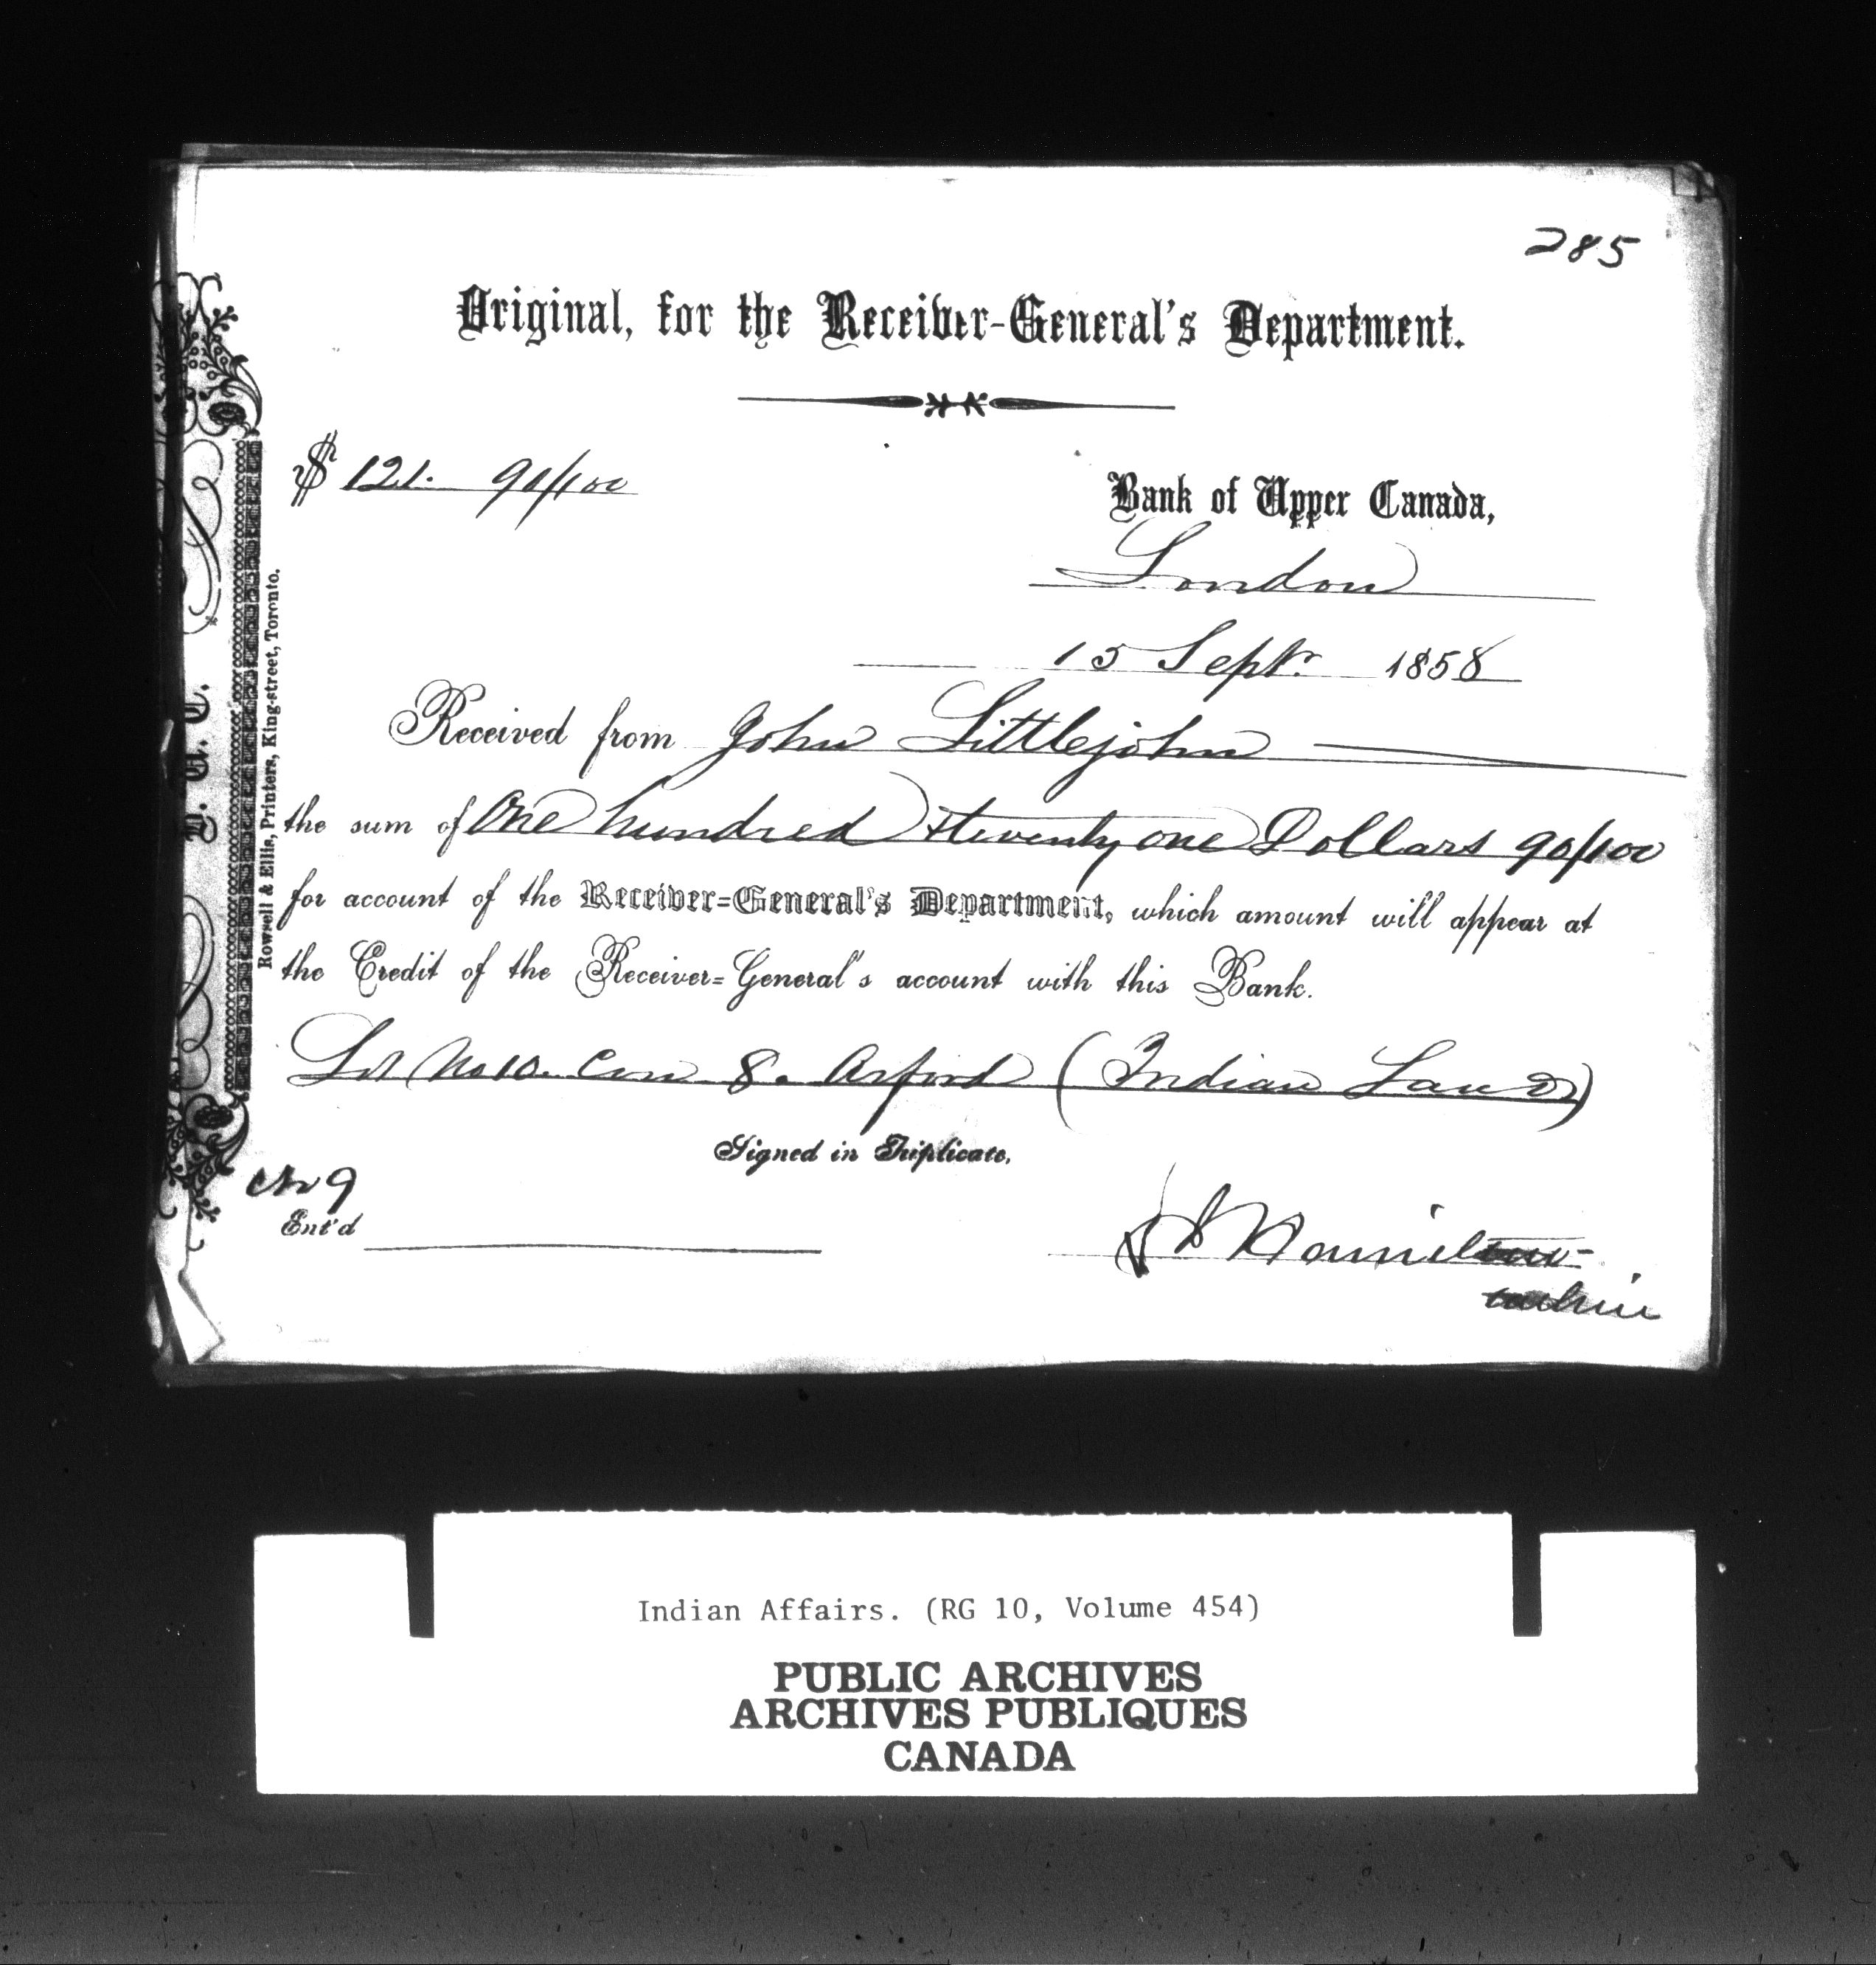 285
Original, for the Receiver-General's Department.
$ 121. 90/100
Bank of Upper Canada,
London
15 Sept. 1858
Received from John Littlejohn
the sum of One hundred & twenty one Dollars 90/100
for account of the Receiver=General's Department, which amount will appear at
the Credit of the Receiver=General's account with this Bank.
Lot No 10. Con 8. Arford (Indian Land)
Signed in Triplicate,
Ent'd
Hamilton
Rowsell & Ellis, Printers, King-street, Toronto.
Indian Affairs. (RG 10, Volume 454)
PUBLIC ARCHIVES
ARCHIVES PUBLIQUES
CANADA